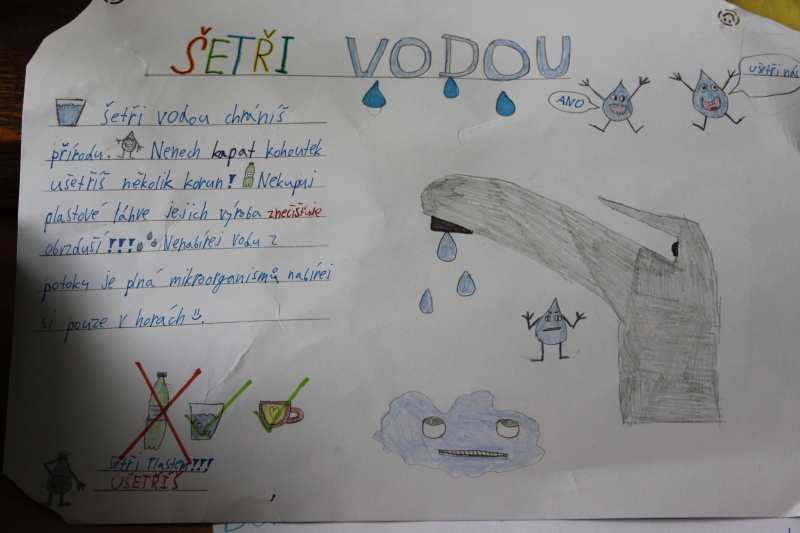 ŠETŘI VODOU
ANO
ušetři nás
šetři vodou chráníš
přírodu. Nenech kapat kohoutek
ušetříš několik korun! Nekupuj
plastové láhve jejich výroba znečišťuje
obvzduší!!! Nenabírej vodu z
potoku je plná mikroorganismů nabírej
si pouze v horách
šetři Plastem!!!
UŠETŘÍŠ